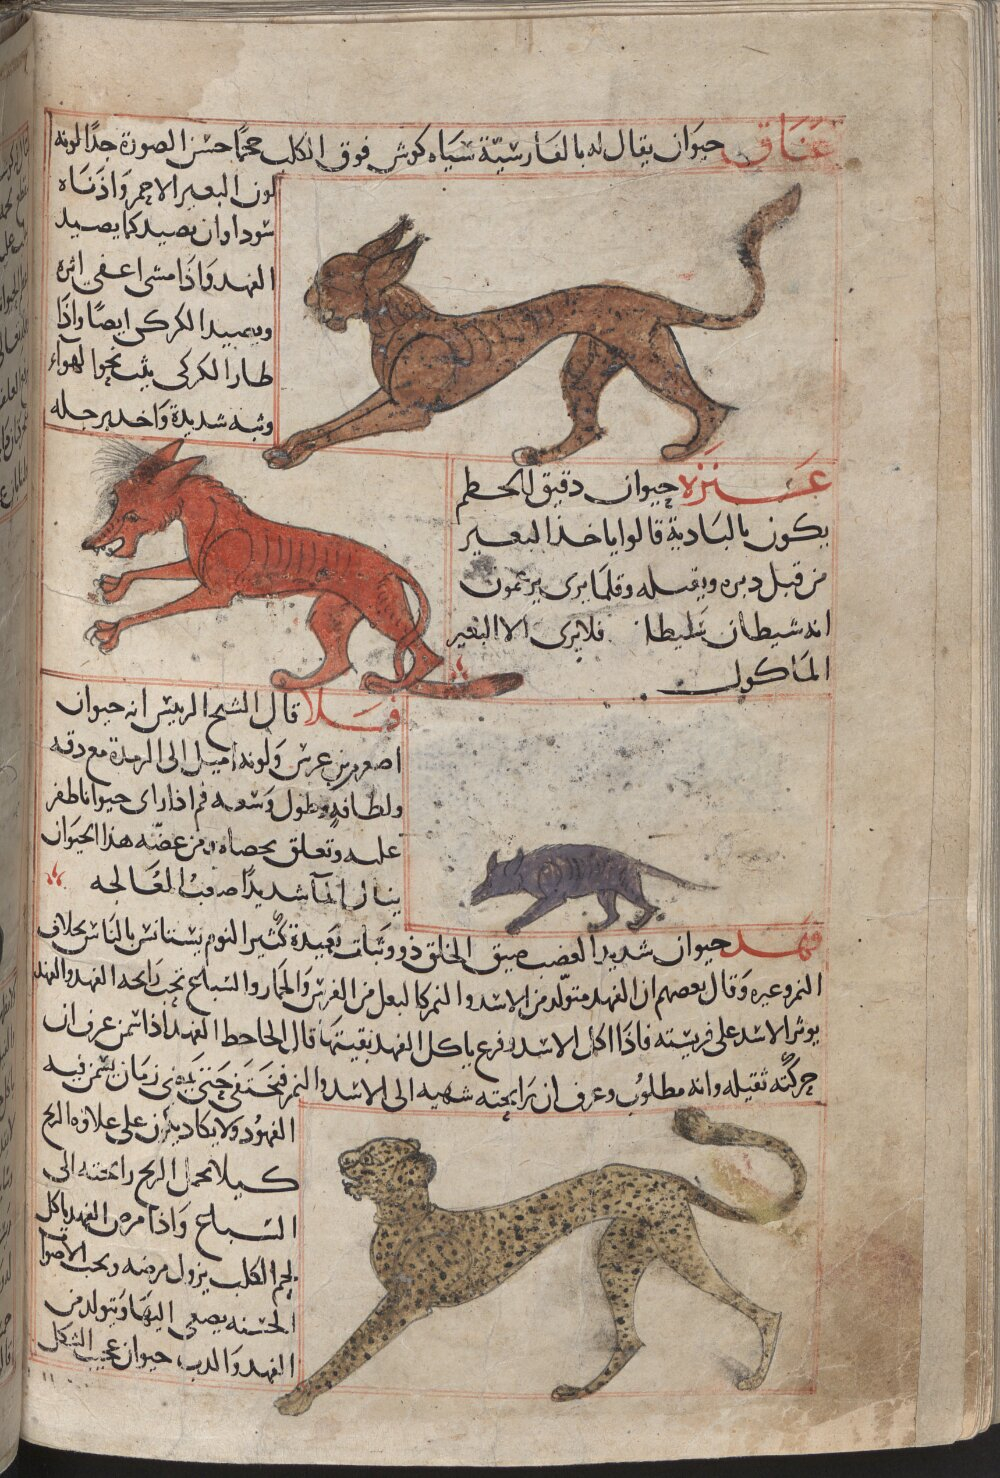 عناق حيوان يقال له بالفارسية سياه كوش فوق الكلب حجما حسن الصورة جدا لونه
لون البعير الاحمر واذناه
سوداوان يصيد كما يصيد
الفهد واذا مشى اعفى اثره
ويصيد الكركى ايضا واذا
طار الكركى يثب نحو الهواء
وثبة شديدة واخذ برجله
عنزة حيوان دقيق الخطم
يكون بالبادية قالوا ياخذ البعير
من قبل دبره وقلما يرى يزعمون
انه شيطان فلا يرى الا البعير
الماكول
قال الشيخ الرييس انه حيوان
اصغر من عرس ولونه اميل الى الرمدة مع دقه
ولطافه وطول وسعه فم اذا راى حيوانا طفر
عليه وتعلق بخصاه ومن عضه هذا الحيوان
ينال الما شديدا صعب المعالجه
فهد حيوان شديد الغضب ضيق الخلق ذو وثبات بعيدة كثير النوم يستانس بالناس بخلاف
النمر وغيره وقال بعضهم ان الفهد متولد من الاسد والنمر كالبغل من الفرس والحمار والسباع تحب رايحه الفهد والفهد
يوثر الاسد على فريسته فاذا اكل الاسد وفرغ ياكل الفهد بقيتها قال الجاحظ الفهد اذا سمن عرف ان
حركته ثقيله وانه مطلوب وعرف ان رايحته شهيه الى الاسد والنمر فيختفى حتى زمان يسمن فيه
الفهود ولا يكاد يكون على علاوة الريح
كيلا يحمل الريح رايحته الى
السباع واذا مرض الفهد ياكل
لحم الكلب يزول مرضه ويحب الاصوات
الحسنه يصغى اليها ويتولد من
الفهد والدب حيوان عجيب الشكل